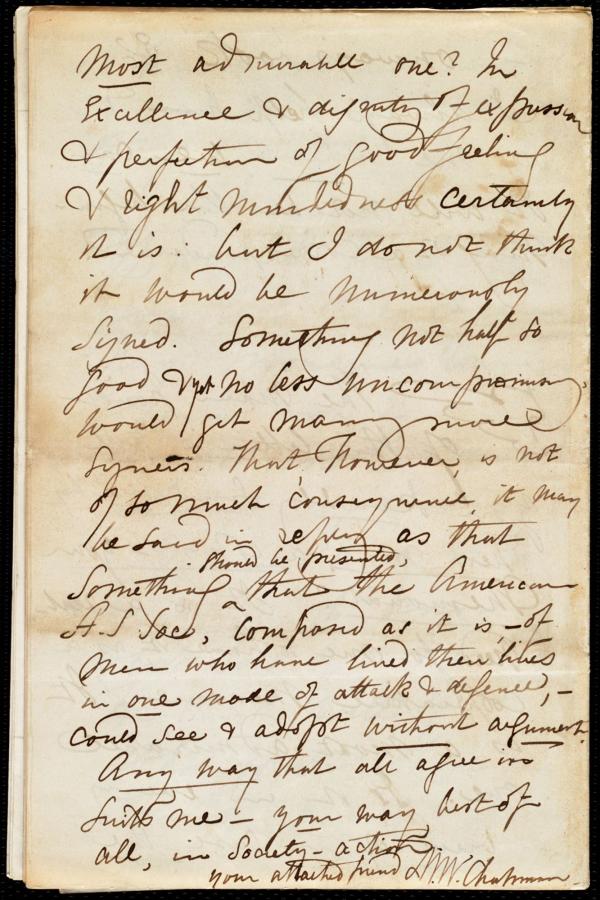 Most admirable one? In
Excellence & dignity of expression
& perfection of good feeling
& right mindedness certainly
it is: but I do not think
it would be numerously
signed. Something not half so
good & yet no less uncompromising,
would get many more
signers. That, however, is not
of so much consequence, it may
be said in reply as that
should be presented,
Something ^ that the American
A. S Soc, composed as it is, - of
men who have lived their lives
in one mode of attack & defence, -
could see & adopt without argument.
Any way that all agree in
suits me - your way best of
all, in Society - action.
your attached friend M. W. Chapman